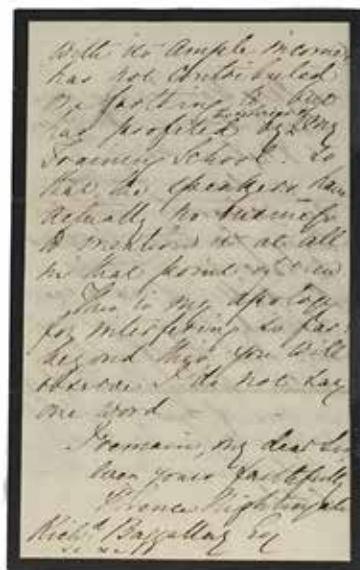 with its ample income
has not contributed
one farthing to but
has profited by my
Training School. So
that the speakers have
actually no business
to mention it at all
in that point of view
This is my apology
for interfering so far:
beyond this you will
observe I do not say
one word
I remain, my dear Sir
ever yours faithfully
Florence Nightingale
Richd Baggallay Esq